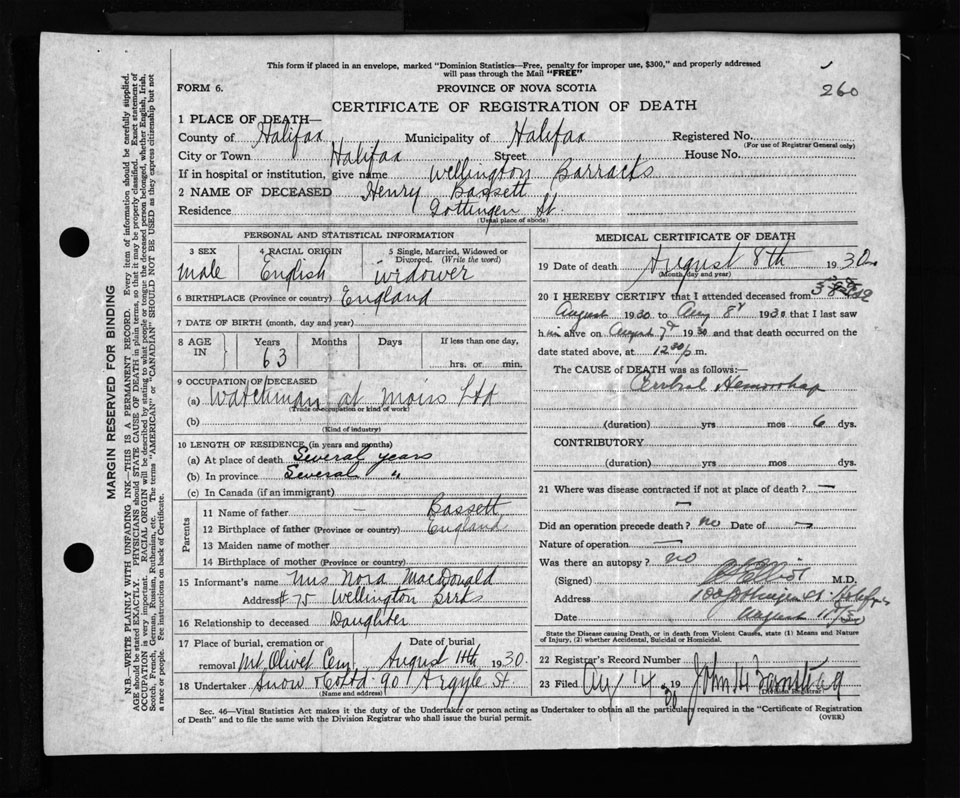 This form if placed in an envelope, marked "Dominion Statistics—Free, penalty for improper use, $300," and properly addressed
will pass through the Mail "FREE"
260
FORM 6.
PROVINCE OF NOVA SCOTIA
CERTIFICATE OF REGISTRATION OF DEATH
1 PLACE OF DEATH—
County of Halifax Municipality of Halifax Registered No.
(For use of Registrar General only)
City or Town Halifax Street House No.
If in hospital or institution, give name Wellington Barracks
2 NAME OF DECEASED Henry Bassett
Residence Gottingen St.
(Usual place of abode)
PERSONAL AND STATISTICAL INFORMATION
3 SEX 4 RACIAL ORIGIN 5 Single, Married, Widowed or
Divorced. (Write the word)
male English widower
6 BIRTHPLACE (Province or country) England
7 DATE OF BIRTH (month, day and year)
8 AGE IN Years Months Days If less than one day,
63 hrs. or min.
9 OCCUPATION OF DECEASED
(a) Watchman at Moirs Ltd
(Trade or occupation or kind of work)
(b)
(Kind of industry)
10 LENGTH OF RESIDENCE (in years and months)
(a) At place of death Several years
(b) In province Several "
(c) In Canada (if an immigrant)
Parents
11 Name of father — Bassett
12 Birthplace of father (Province or country) England
13 Maiden name of mother
14 Birthplace of mother (Province or country)
15 Informant's name Mrs Nora MacDonald
Address #75 Wellington Brrks
16 Relationship to deceased Daughter
17 Place of burial, cremation or Date of burial
removal Mt Olivet Cem. August 11th 1930.
18 Undertaker Snow & Co Ltd 90 Argyle St.
(Name and address)
MEDICAL CERTIFICATE OF DEATH
19 Date of death August 8th 1930
(Month, day and year)
20 I HEREBY CERTIFY that I attended deceased from
August 1930 to Aug 8th 1930 that I last saw
him alive on August 7th 1930 and that death occurred on
date stated above, at 12 30 p.m.
The CAUSE of DEATH was as follows:—
Cerebral Hemorrhag
(duration) yrs mos 6 dys.
CONTRIBUTORY
(duration) yrs. mos. dys.
21 Where was disease contracted if not at place of death? —
—
Did an operation precede death? no Date of —
Nature of operation —
Was there an autopsy? no
(Signed) M.D.
Address Gottingen St. Halifax
Date August 11/30
State the Disease causing Death, or in death from Violent Causes, state (1) Means and Nature
of Injury, (2) whether Accidental, Suicidal, or Homicidal.
22 Registrar's Record Number
23 Filed Aug 14 1930 John H.
(Division Registrar)
Sec. 46—Vital Statistics Act makes it the duty of the Undertaker or person acting as Undertaker to obtain all the particulars required in the "Certificate of Registration
of Death" and to file the same with the Division Registrar who shall issue the burial permit.
(OVER)
MARGIN RESERVED FOR BINDING
N.B.—WRITE PLAINLY WITH UNFADING INK—THIS IS A PERMANENT RECORD. Every item of information should be carefully supplied.
AGE should be stated EXACTLY. PHYSICIANS should STATE CAUSE OF DEATH in plain terms, so that it may be properly classified. Exact statement of
OCCUPATION is very important. RACIAL ORIGIN will be described by stating to what people or tongue the deceased person belonged, whether English, Irish,
Scotch, French, German, Russian, Ruthenian, etc. The terms "AMERICAN" or "CANADIAN" SHOULD NOT BE USED as they express citizenship but not
a race or people. Fee instructions on back of Certificate.